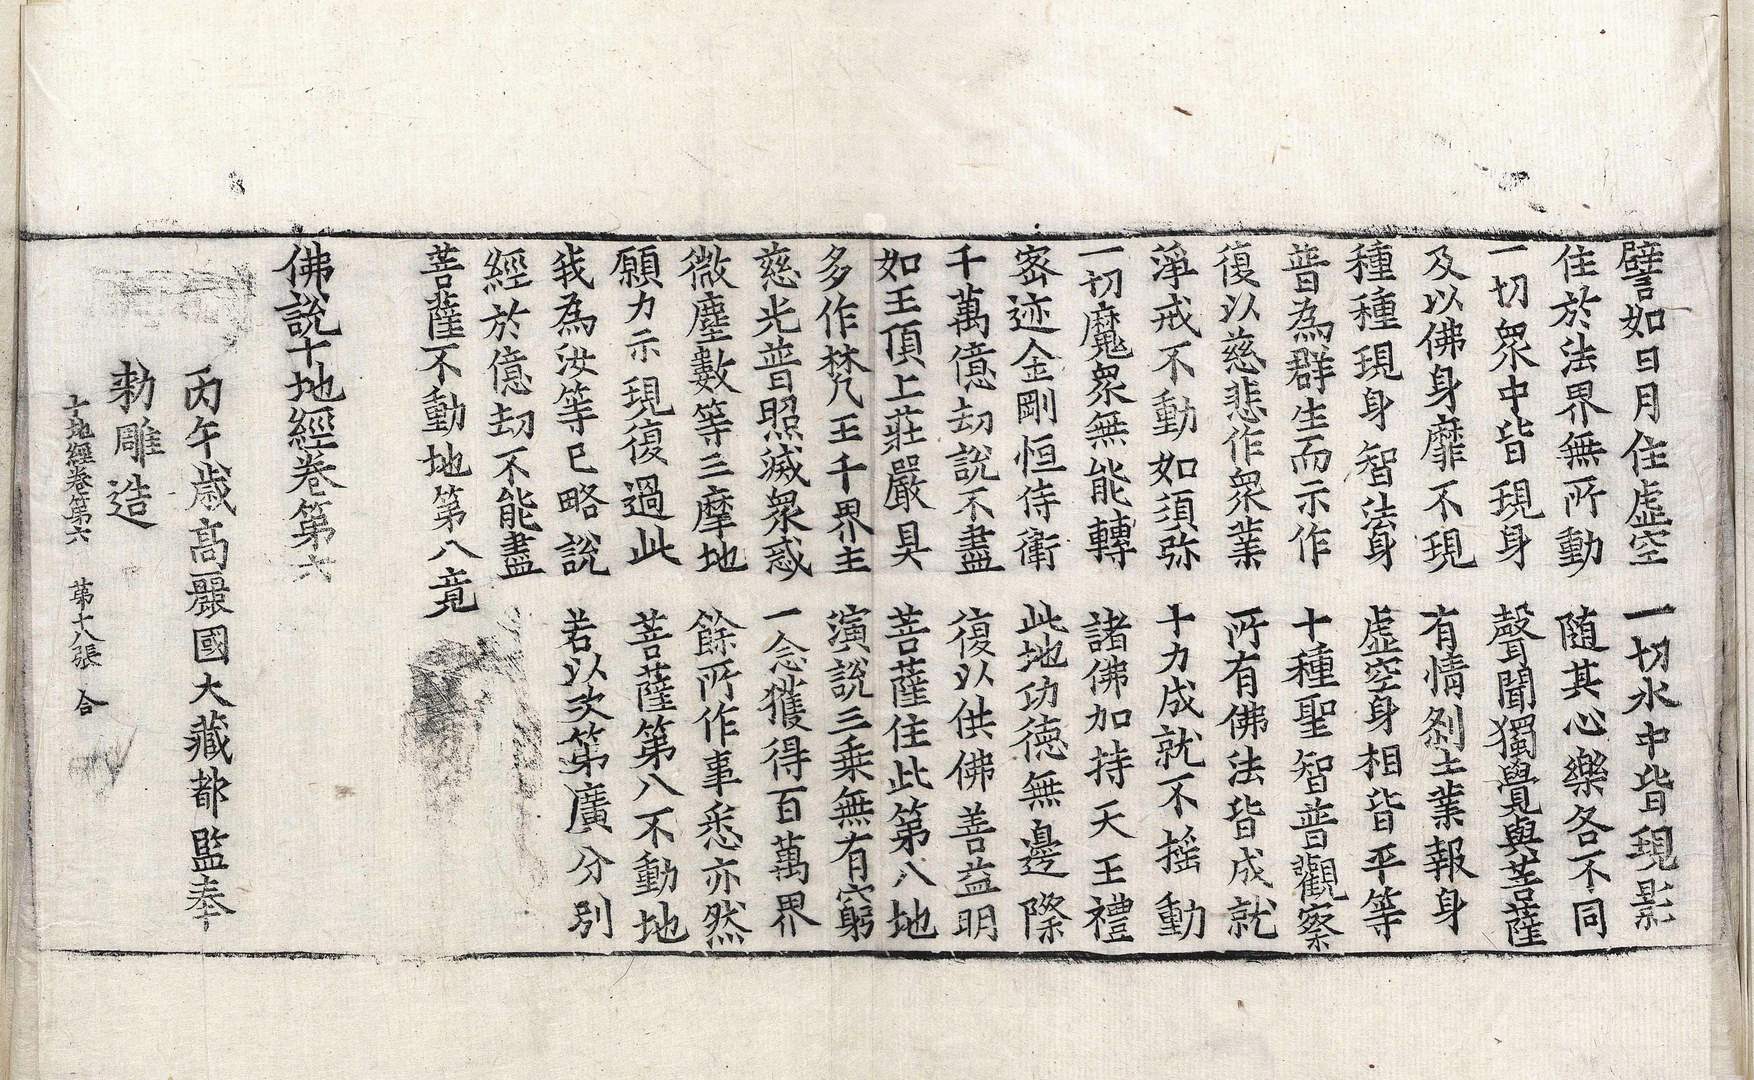 譬如日月住虛空　一切水中皆現影
住於法界無所動　随其心樂各不同
一切衆中皆現身　聲聞獨覺與菩薩
及以佛身靡不現　有情刹土業報身
種種現身智法身　虛空身相皆平等
普為群生而示作　十種聖智普觀察
復以慈悲作衆業　所有佛法皆成就
淨戒不動如須弥　十力成就不摇動
一切魔衆無能轉　諸佛加持天王禮
密迹金剛恒侍衛　此地功德無邊際
千萬億劫說不盡　復以供佛善益明
如王頂上莊嚴具　菩薩住此第八地
多作梵王千界主　演說三乗無有窮
慈光普照滅衆惑　一念獲得百萬界
微塵數等三摩地　餘所作事悉亦然
願力示現復過此　菩薩第八不動地
我為汝等已略說　若以次第廣分別
經於億劫不能盡
菩薩不動地第八竟
佛說十地經卷第六
丙午歲高麗國大藏都監奉
勑雕造
十地經卷第六　第十八張　合